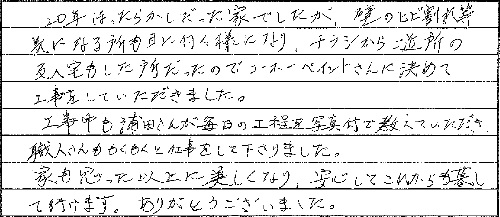 20年ほったらかしだった家でしたが、壁のヒビ割れ等
気になる所も目に付く様になり、チラシからご近所の
友人宅もした所だったのでユーホーペイントさんに決めて
工事をしていただきました。
工事中も清田さんが毎日の工程を写真付で教えていただき
職人さんももくもくと仕事をして下さりました。
家も思った以上に美しくなり、安心してこれからも暮し
て行けます。ありがとうございました。